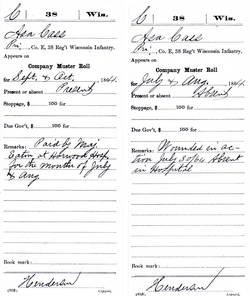 C | 38 | Wis.
Asa Cass
Pri., Co. E, 38 Reg't Wisconsin Infantry.
Appears on
Company Muster Roll
for Sept & Oct, 1864.
Present or absent Present
Stoppage, $ 100 for
Due Gov't, $ 100 for
Remarks: Paid by Maj
Eaton at Harwood Hosp
for the month of July
& Aug
Book mark:
Henderson
C | 38 | Wis.
Asa Cass
Pri., Co. E, 38 Reg't Wisconsin Infantry.
Appears on
Company Muster Roll
for July & Aug, 1864.
Present or absent Absent
Stoppage, $ 100 for
Due Gov't, $ 100 for
Remarks: Wounded in ac-
tion July 30/64 Absent
in Hospital
Book mark:
Henderson